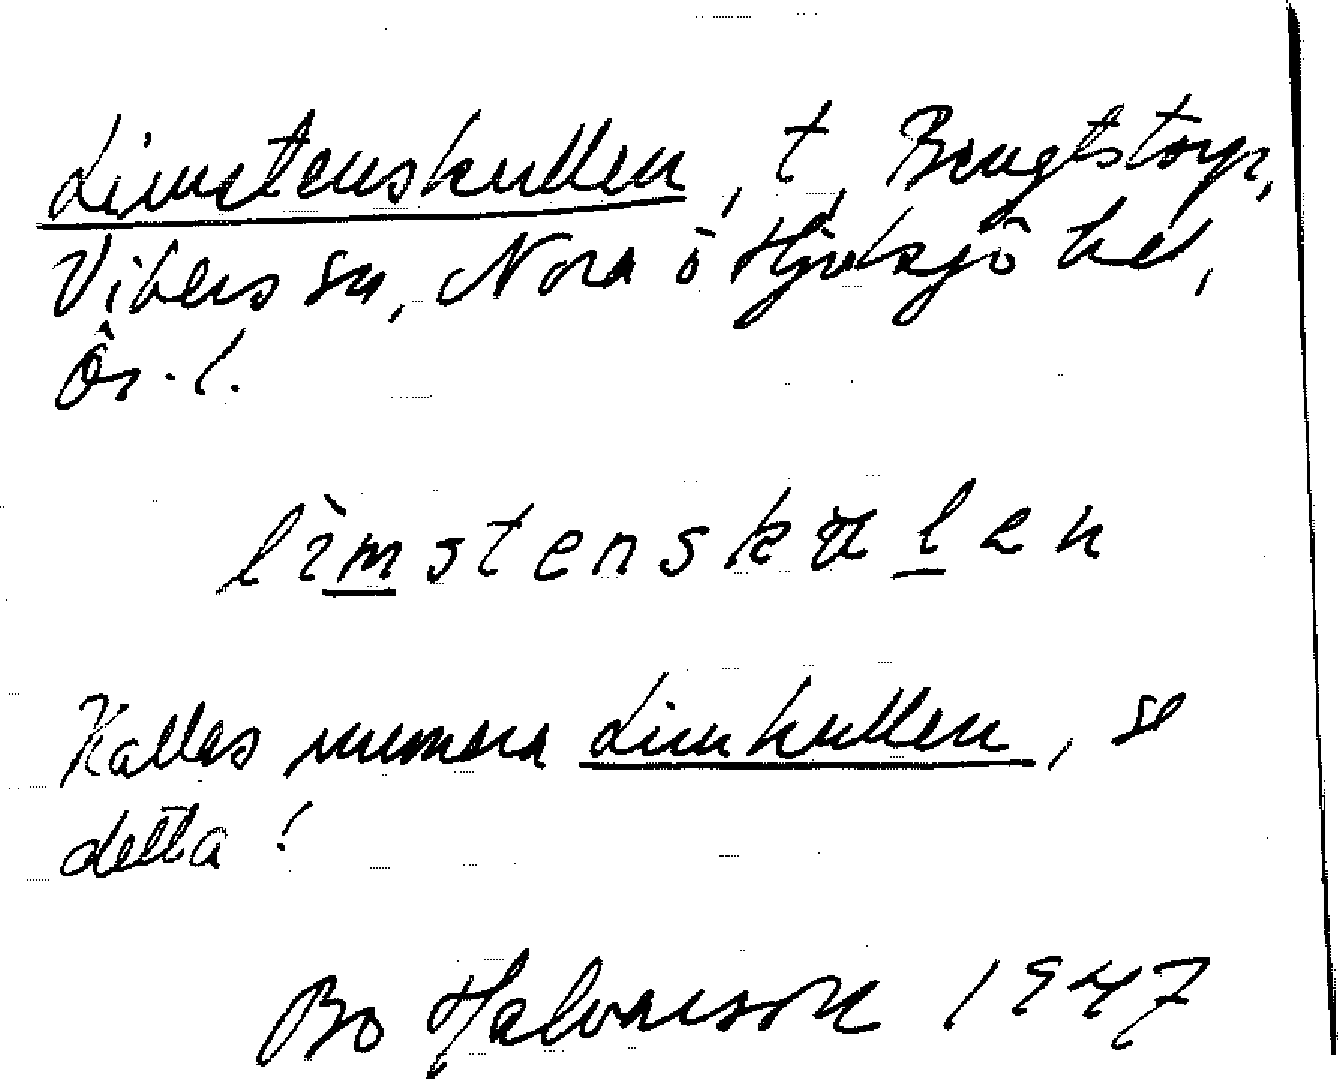 Limstenskullen, t. Bengtstorp,
Vikers sn, Nora o Hjulsjö hd,
Ör. l.
lìmstenskuḻen
Kallas numera Limkullen, se
detta!
Bo Halvarson 1947